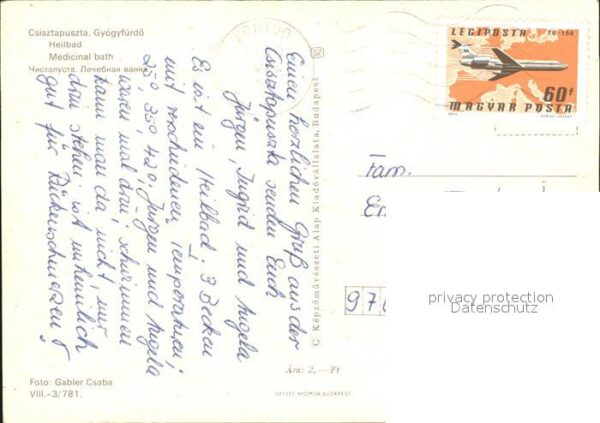 Csisztapuszta. Gyógyfürdő
Heilbad
Medicinal bath
Чистапуста. Лечебная ванна
Einen herzlichen Gruß aus der
Csisztapuszta senden Euch
Jürgen, Ingrid und Angela
Es ist ein Heilbad. 3 Becken
mit verschiedenen Temperaturen,
25° 35° 42°. Jürgen und Angela
waren mal drin, schwimmen
kann man da nicht, nur
drin stehen ist unheimlich
gut für Rückenschmerzen
Foto: Gabler Csaba
VIII.–3/781.
© Képzőművészeti Alap Kiadóvállalata, Budapest
Ára: 2,— Ft
OFFSET NYOMDA BUDAPEST
LÉGIPOSTA TU-154
60f
MAGYAR POSTA
Fam.
97
privacy protection
Datenschutz